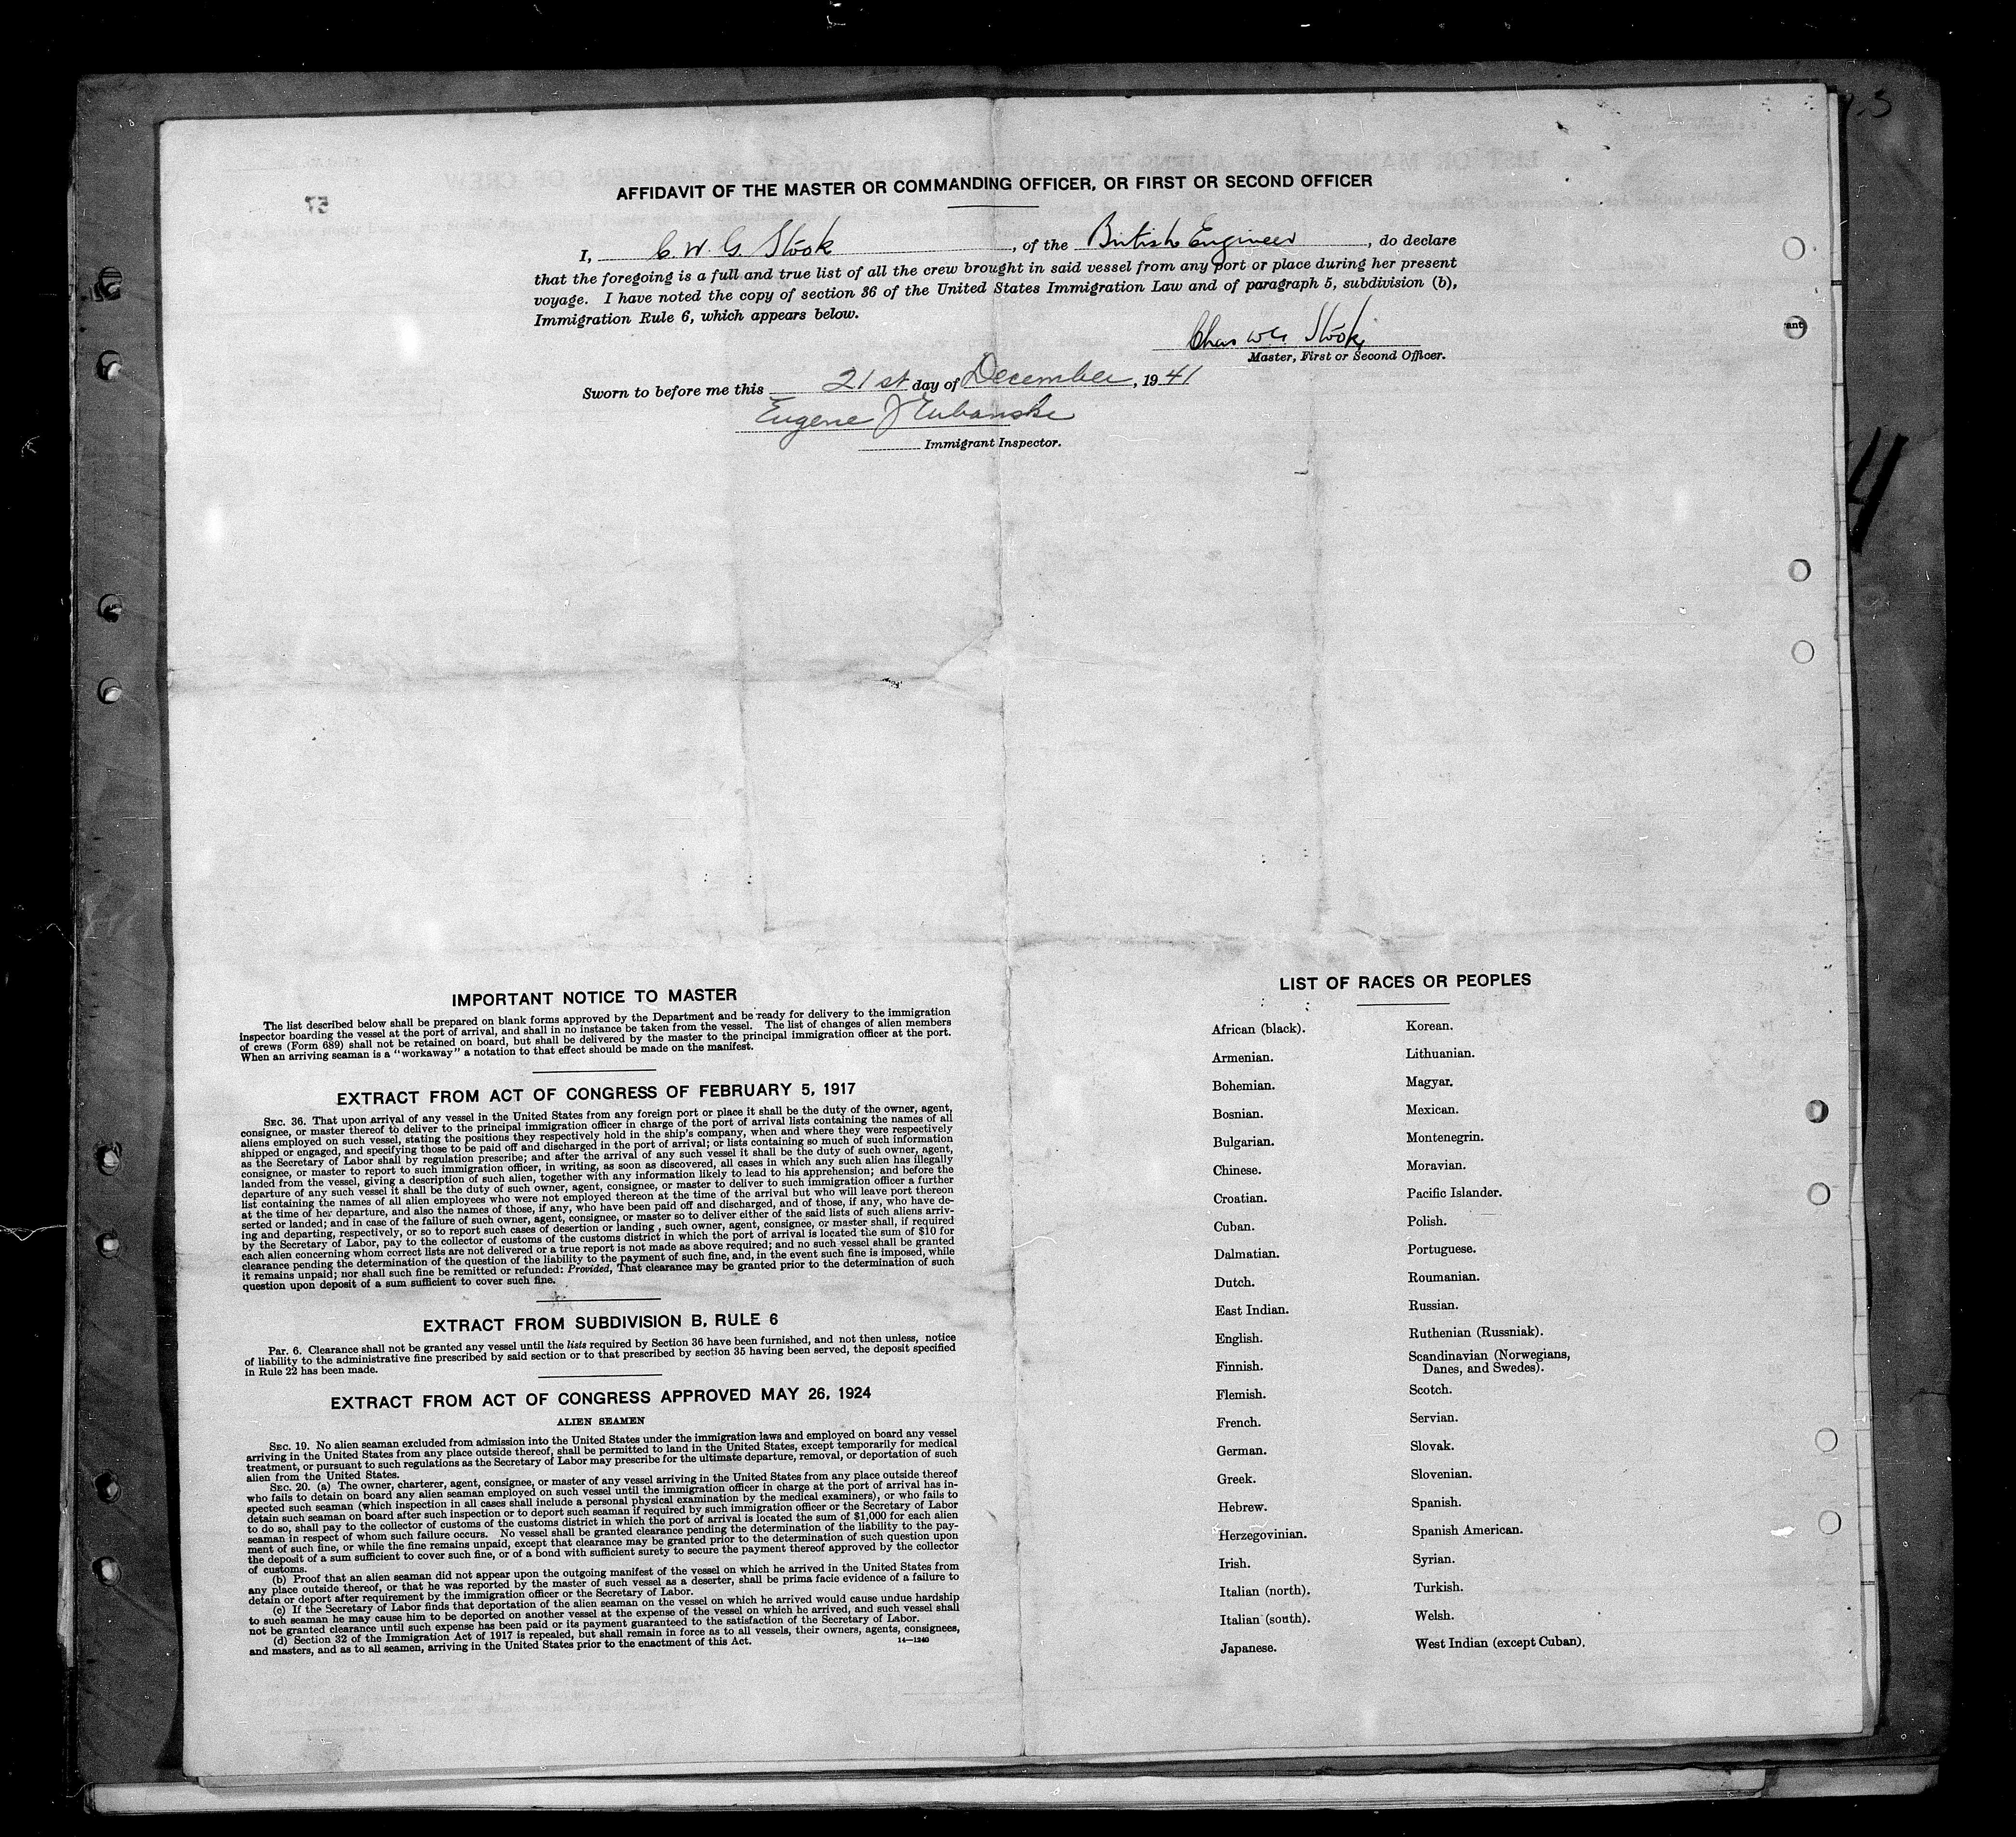 AFFIDAVIT OF THE MASTER OR COMMANDING OFFICER, OR FIRST OR SECOND OFFICER
I, C. W. G. Stook, of the British Engineer, do declare
that the foregoing is a full and true list of all the crew brought in said vessel from any port or place during her present
voyage. I have noted the copy of section 36 of the United States Immigration Law and of paragraph 5, subdivision (b),
Immigration Rule 6, which appears below.
Chas W G Stook
Master, First or Second Officer.
Sworn to before me this 21st day of December, 1941
Eugene J
Immigrant Inspector.
IMPORTANT NOTICE TO MASTER
The list described below shall be prepared on blank forms approved by the Department and be ready for delivery to the immigration
inspector boarding the vessel at the port of arrival, and shall in no instance be taken from the vessel. The list of changes of alien members
of crews (Form 689) shall not be retained on board, but shall be delivered by the master to the principal immigration officer at the port.
When an arriving seaman is a "workaway" a notation to that effect should be made on the manifest.
EXTRACT FROM ACT OF CONGRESS OF FEBRUARY 5, 1917
SEC. 36. That upon arrival of any vessel in the United States from any foreign port or place it shall be the duty of the owner, agent,
consignee, or master thereof to deliver to the principal immigration officer in charge of the port of arrival lists containing the names of all
aliens employed on such vessel, stating the positions they respectively hold in the ship's company, when and where they were respectively
shipped or engaged, and specifying those to be paid off and discharged in the port of arrival; or lists containing so much of such information
as the Secretary of Labor shall by regulation prescribe; and after the arrival of any such vessel it shall be the duty of such owner, agent,
consignee, or master to report to such immigration officer, in writing, as soon as discovered, all cases in which any such alien has illegally
landed from the vessel, giving a description of such alien, together with any information likely to lead to his apprehension; and before the
departure of any such vessel it shall be the duty of such owner, agent, consignee, or master to deliver to such immigration officer a further
list containing the names of all alien employees who were not employed thereon at the time of the arrival but who will leave port thereon
at the time of her departure, and also the names of those, if any, who have been paid off and discharged, and of those, if any, who have de-
serted or landed; and in case of the failure of such owner, agent, consignee, or master so to deliver either of the said lists of such aliens arriv-
ing and departing, respectively, or so to report such cases of desertion or landing, such owner, agent, consignee, or master shall, if required
by the Secretary of Labor, pay to the collector of customs of the customs district in which the port of arrival is located the sum of $10 for
each alien concerning whom correct lists are not delivered or a true report is not made as above required; and no such vessel shall be granted
clearance pending the determination of the question of the liability to the payment of such fine, and, in the event such fine is imposed, while
it remains unpaid; nor shall such fine be remitted or refunded: Provided, That clearance may be granted prior to the determination of such
question upon deposit of a sum sufficient to cover such fine.
EXTRACT FROM SUBDIVISION B, RULE 6
Par. 6. Clearance shall not be granted any vessel until the lists required by Section 36 have been furnished, and not then unless, notice
of liability to the administrative fine prescribed by said section or to that prescribed by section 35 having been served, the deposit specified
in Rule 22 has been made.
EXTRACT FROM ACT OF CONGRESS APPROVED MAY 26, 1924
ALIEN SEAMEN
SEC. 19. No alien seaman excluded from admission into the United States under the immigration laws and employed on board any vessel
arriving in the United States from any place outside thereof, shall be permitted to land in the United States, except temporarily for medical
treatment, or pursuant to such regulations as the Secretary of Labor may prescribe for the ultimate departure, removal, or deportation of such
alien from the United States.
SEC. 20. (a) The owner, charterer, agent, consignee, or master of any vessel arriving in the United States from any place outside thereof
who fails to detain on board any alien seaman employed on such vessel until the immigration officer in charge at the port of arrival has in-
spected such seaman (which inspection in all cases shall include a personal physical examination by the medical examiners), or who fails to
detain such seaman on board after such inspection or to deport such seaman if required by such immigration officer or the Secretary of Labor
to do so, shall pay to the collector of customs of the customs district in which the port of arrival is located the sum of $1,000 for each alien
seaman in respect of whom such failure occurs. No vessel shall be granted clearance pending the determination of the liability to the pay-
ment of such fine, or while the fine remains unpaid, except that clearance may be granted prior to the determination of such question upon
the deposit of a sum sufficient to cover such fine, or of a bond with sufficient surety to secure the payment thereof approved by the collector
of customs.
(b) Proof that an alien seaman did not appear upon the outgoing manifest of the vessel on which he arrived in the United States from
any place outside thereof, or that he was reported by the master of such vessel as a deserter, shall be prima facie evidence of a failure to
detain or deport after requirement by the immigration officer or the Secretary of Labor.
(c) If the Secretary of Labor finds that deportation of the alien seaman on the vessel on which he arrived would cause undue hardship
to such seaman he may cause him to be deported on another vessel at the expense of the vessel on which he arrived, and such vessel shall
not be granted clearance until such expense has been paid or its payment guaranteed to the satisfaction of the Secretary of Labor.
(d) Section 32 of the Immigration Act of 1917 is repealed, but shall remain in force as to all vessels, their owners, agents, consignees,
and masters, and as to all seamen, arriving in the United States prior to the enactment of this Act.
14—1240
LIST OF RACES OR PEOPLES
African (black).
Armenian.
Bohemian.
Bosnian.
Bulgarian.
Chinese.
Croatian.
Cuban.
Dalmatian.
Dutch.
East Indian.
English.
Finnish.
Flemish.
French.
German.
Greek.
Hebrew.
Herzegovinian.
Irish.
Italian (north).
Italian (south).
Japanese.
Korean.
Lithuanian.
Magyar.
Mexican.
Montenegrin.
Moravian.
Pacific Islander.
Polish.
Portuguese.
Roumanian.
Russian.
Ruthenian (Russniak).
Scandinavian (Norwegians,
Danes, and Swedes).
Scotch.
Servian.
Slovak.
Slovenian.
Spanish.
Spanish American.
Syrian.
Turkish.
Welsh.
West Indian (except Cuban).